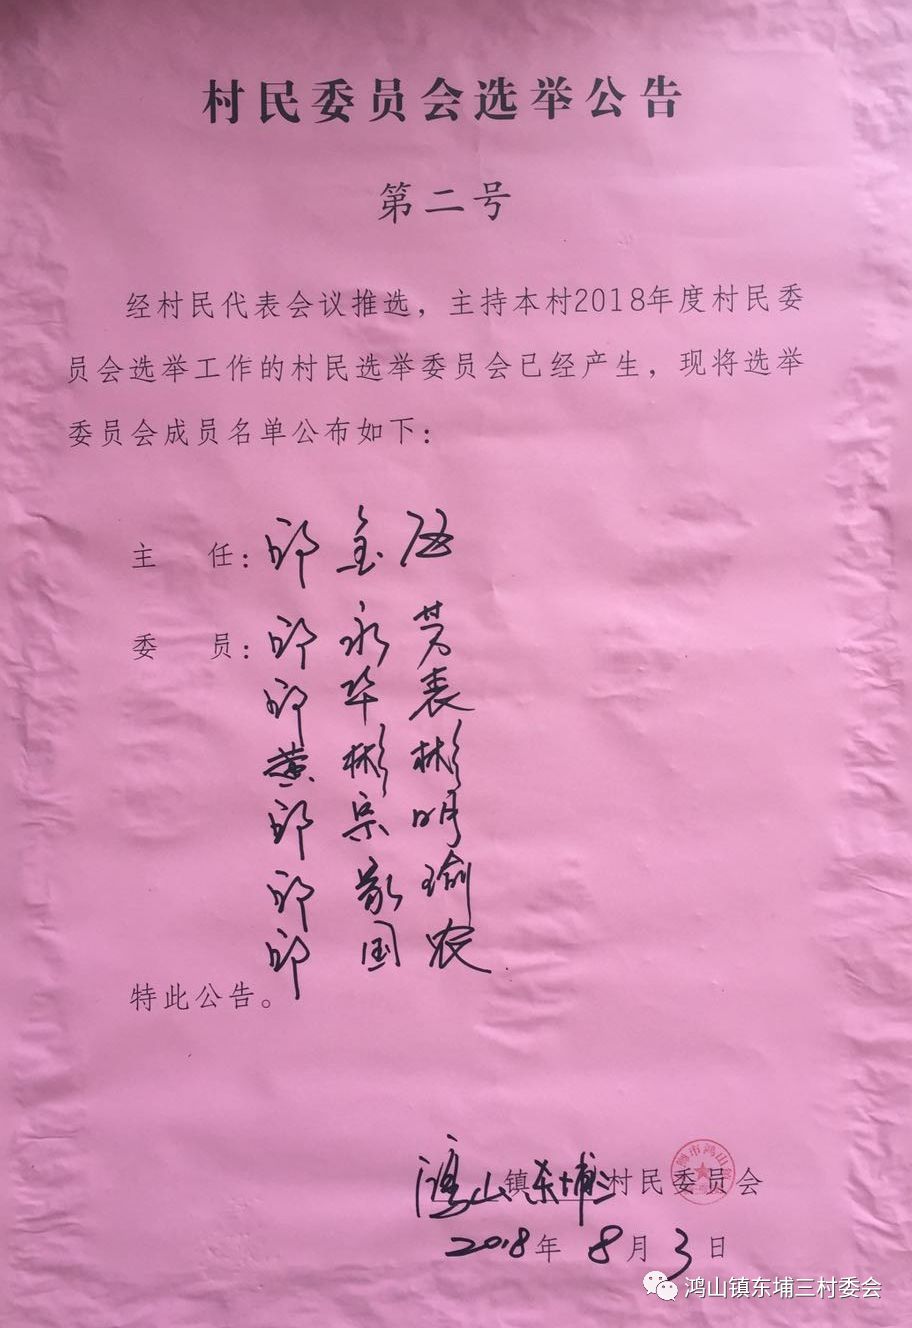 村民委员会选举公告
第二号
经村民代表会议推选，主持本村2018年度村民委
员会选举工作的村民选举委员会已经产生，现将选举
委员会成员名单公布如下：
主　任：邱金
委　员：邱永芳
邱华表
黄彬彬
邱宗明
邱 瑜
邱国农
特此公告。
鸿山镇东埔三村民委员会
2018年8月3日
鸿山镇东埔三村委会